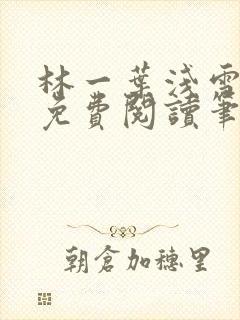 林一葉浅雪
免費閱讀筆
朝倉加穗里